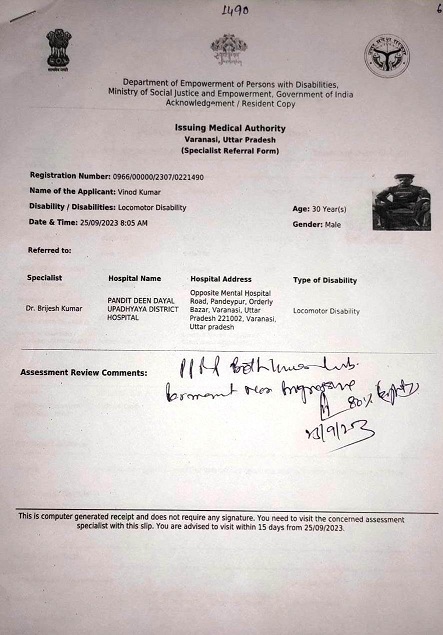 1490
6
Department of Empowerment of Persons with Disabilities,
Ministry of Social Justice and Empowerment, Government of India
Acknowledgement / Resident Copy
Issuing Medical Authority
Varanasi, Uttar Pradesh
(Specialist Referral Form)
Registration Number: 0966/00000/2307/0221490
Name of the Applicant: Vinod Kumar
Disability / Disabilities: Locomotor Disability
Age: 30 Year(s)
Date & Time: 25/09/2023 8:05 AM
Gender: Male
Referred to:
Specialist Hospital Name Hospital Address Type of Disability
Dr. Brijesh Kumar
PANDIT DEEN DAYAL
UPADHYAYA DISTRICT
HOSPITAL
Opposite Mental Hospital
Road, Pandeypur, Orderly
Bazar, Varanasi, Uttar
Pradesh 221002, Varanasi,
Uttar pradesh
Locomotor Disability
Assessment Review Comments:
80%
This is computer generated receipt and does not require any signature. You need to visit the concerned assessment
specialist with this slip. You are advised to visit within 15 days from 25/09/2023.